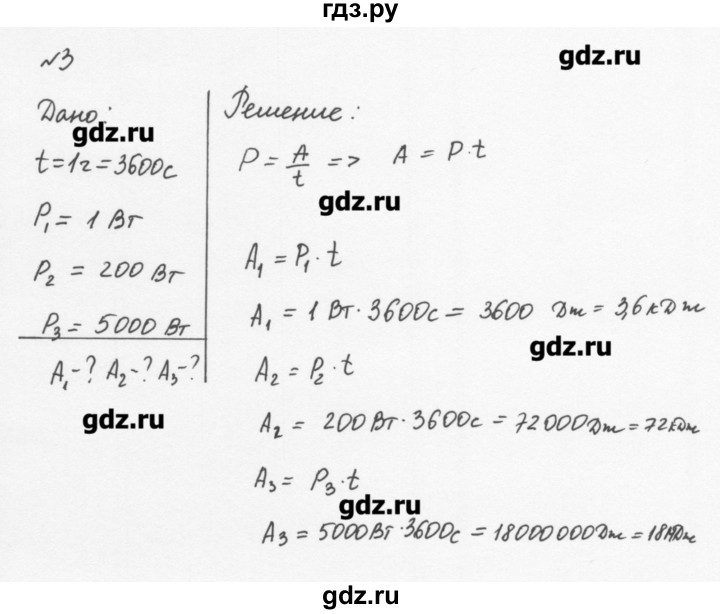 гдз.ру
№3
gdz.ru
Дано:
gdz.ru
t=1ч=3600с
P₁= 1 Вт
P₂ = 200 Вт
P₃= 5000 Вт
A₁-? A₂-? A₃-?
gdz.ru
Решение:
P = A/t => A = P·t
gdz.ru
A₁ = P₁·t
A₁ = 1 Вт·3600с = 3600 Дж = 3,6кДж
gdz.ru
A₂ = P₂·t
A₂ = 200Вт·3600с = 72000Дж = 72кДж
A₃ = P₃·t
gdz.ru
A₃ = 5000Вт·3600с = 18000000Дж = 18МДж
gdz.ru